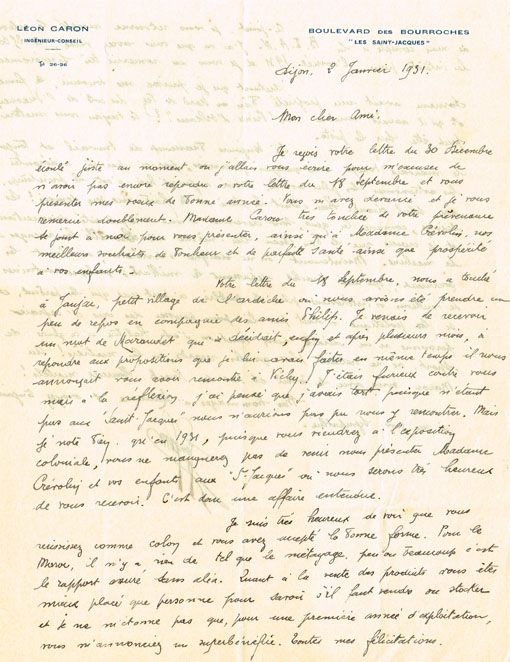 LÉON CARON
INGÉNIEUR-CONSEIL
Tél 26-26
BOULEVARD DES BOURROCHES
"LES SAINT-JACQUES"
Dijon, 2 Janvier 1931.
Mon cher Ami,
Je reçois votre lettre du 30 Décembre
écoulé juste au moment ou j'allais vous écrire pour m'excuser de
n'avoir pas encore repondu a votre lettre du 18 septembre et vous
présenter mes vœux de bonne année. Vous m'avez devancé et je vous
remercie doublement. Madame Caron très touchée de votre prévenance
se joint à moi pour vous présenter, ainsi qu'à Madame Crévolin, nos
meilleurs souhaits de bonheur et de parfaite santé ainsi que prospérité
à vos enfants.-
Votre lettre du 18 septembre, nous a touché
à Jaujac, petit village de l'ardèche où nous avions été prendre un
peu de repos en compagnie des amis Philip. Je venais de recevoir
un mot de qui se décidait enfin et après plusieurs mois, à
repondre aux propositions que je lui avais faites en même temps il nous
annonçait vous avoir rencontré à Vichy. J'étais furieux contre vous
mais à la réflexion, j'ai pensé que j'avais tort puisque n'étant
pas aux "Saint-Jacques" nous n'aurions pas pu nous y rencontrer. Mais
je note qu'en 1931, puisque vous viendrez à l'exposition
coloniale, vous ne manquerez pas de venir nous présenter Madame
Crévolin et vos enfants aux "St Jacques" où nous serons très heureux
de vous recevoir. C'est donc une affaire entendue.
Je suis très heureux de voir que vous
réussissez comme colon et vous avez accepté la bonne forme. Pour le
Maroc, il n'y a rien de tel que le métayage, peu ou beaucoup c'est
le rapport assuré sans aléa. Quant à la vente des produits vous êtes
mieux placé que personne pour savoir s'il faut vendre ou stocker
et je ne m'étonne pas que, pour une première année d'exploitation,
vous m'annonciez un superbénéfice. Toutes mes félicitations.